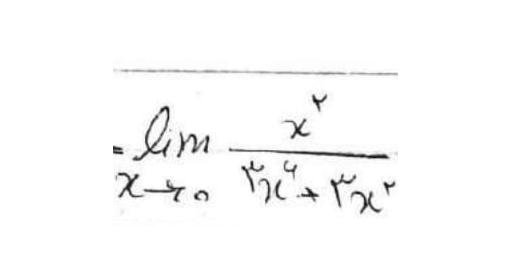 = lim x→0 x^۲ / (۳x^۴ + ۳x^۲)